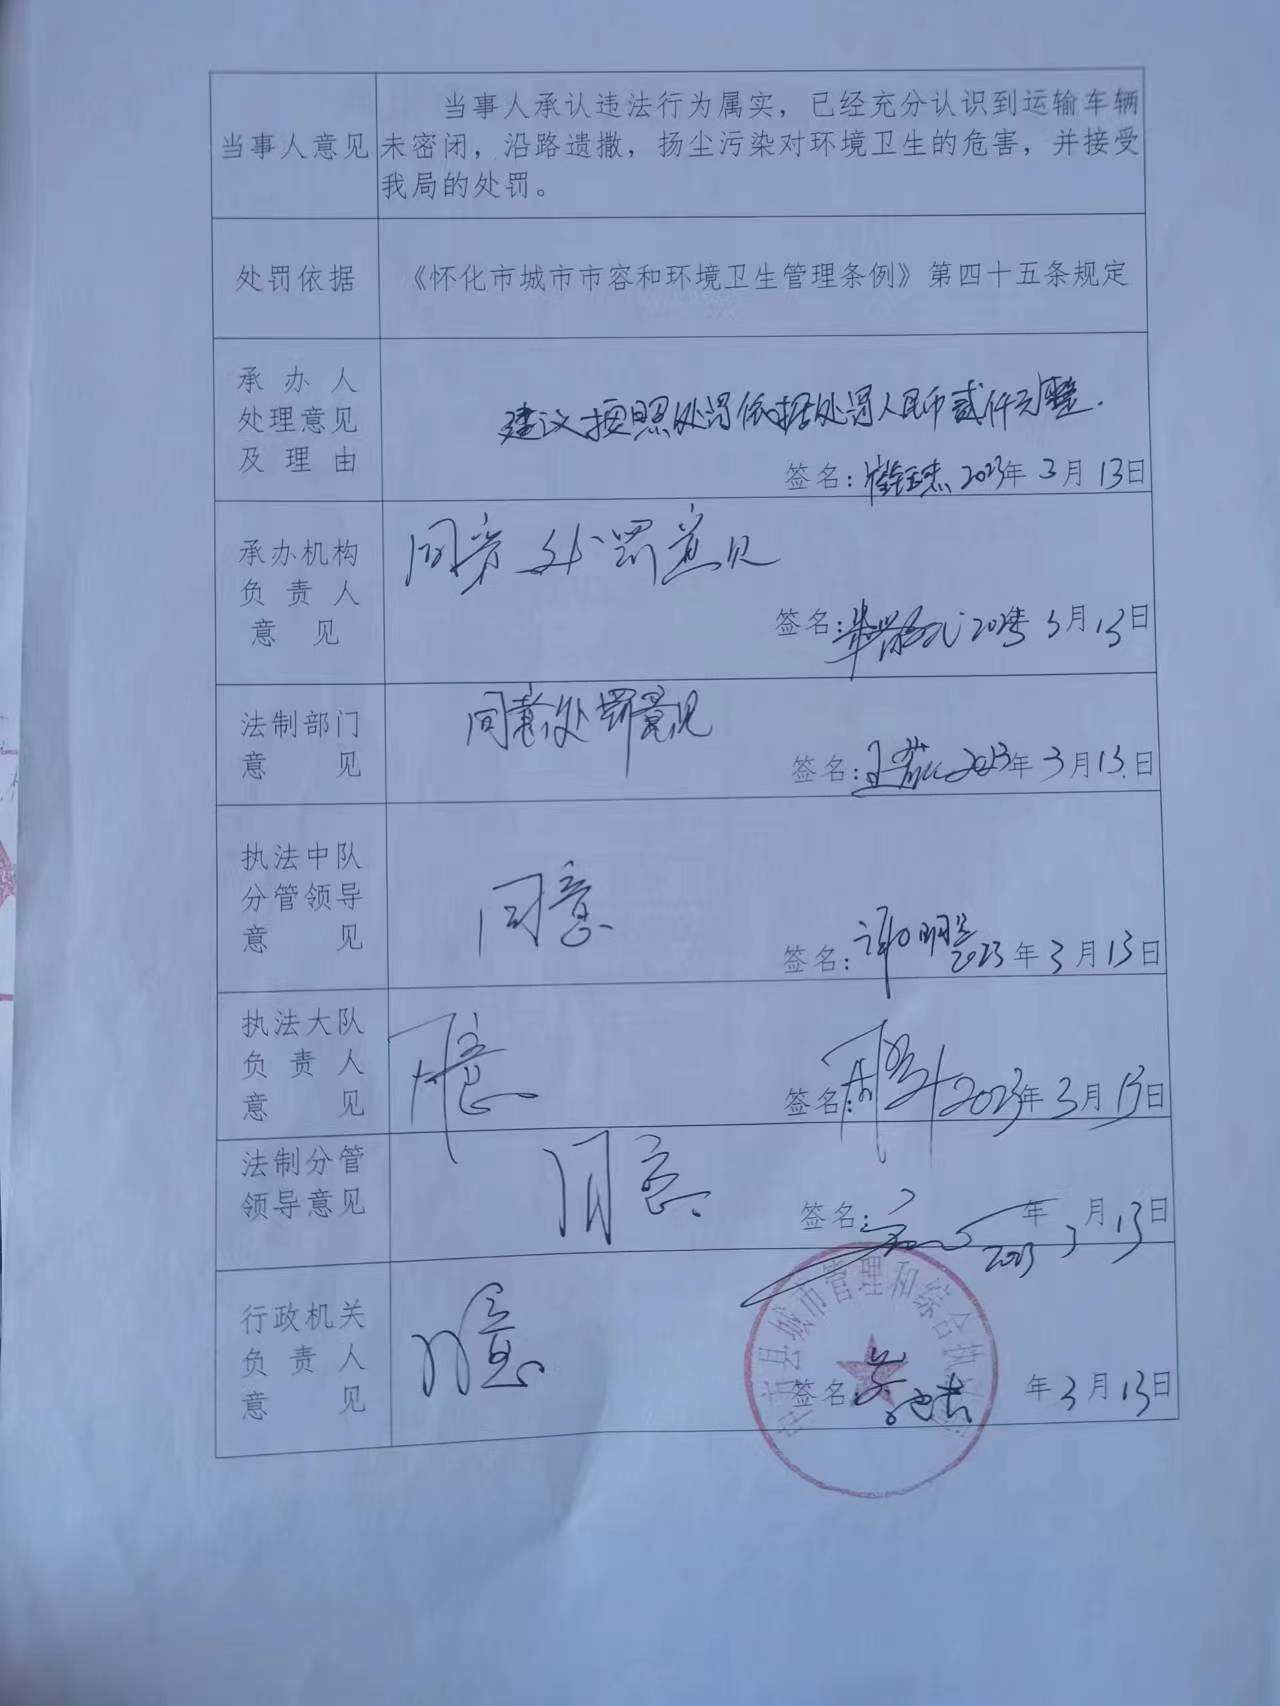 当事人意见
当事人承认违法行为属实，已经充分认识到运输车辆
未密闭，沿路遗撒，扬尘污染对环境卫生的危害，并接受
我局的处罚。
处罚依据
《怀化市城市市容和环境卫生管理条例》第四十五条规定
承办人
处理意见
及理由
建议按照处罚依据处罚人民币贰仟元整.
签名： 2023年3月13日
承办机构
负责人
意见
同意处罚意见
签名： 年3月13日
法制部门
意见
同意处罚意见
签名：王 2023年3月13日
执法中队
分管领导
意见
同意
签名：谢明 2023年3月13日
执法大队
负责人
意见
同意
签名：周 2023年3月13日
法制分管
领导意见
同意
签名： 2023年3月13日
行政机关
负责人
意见
同意
签名 年3月13日
县城市管理和综合执